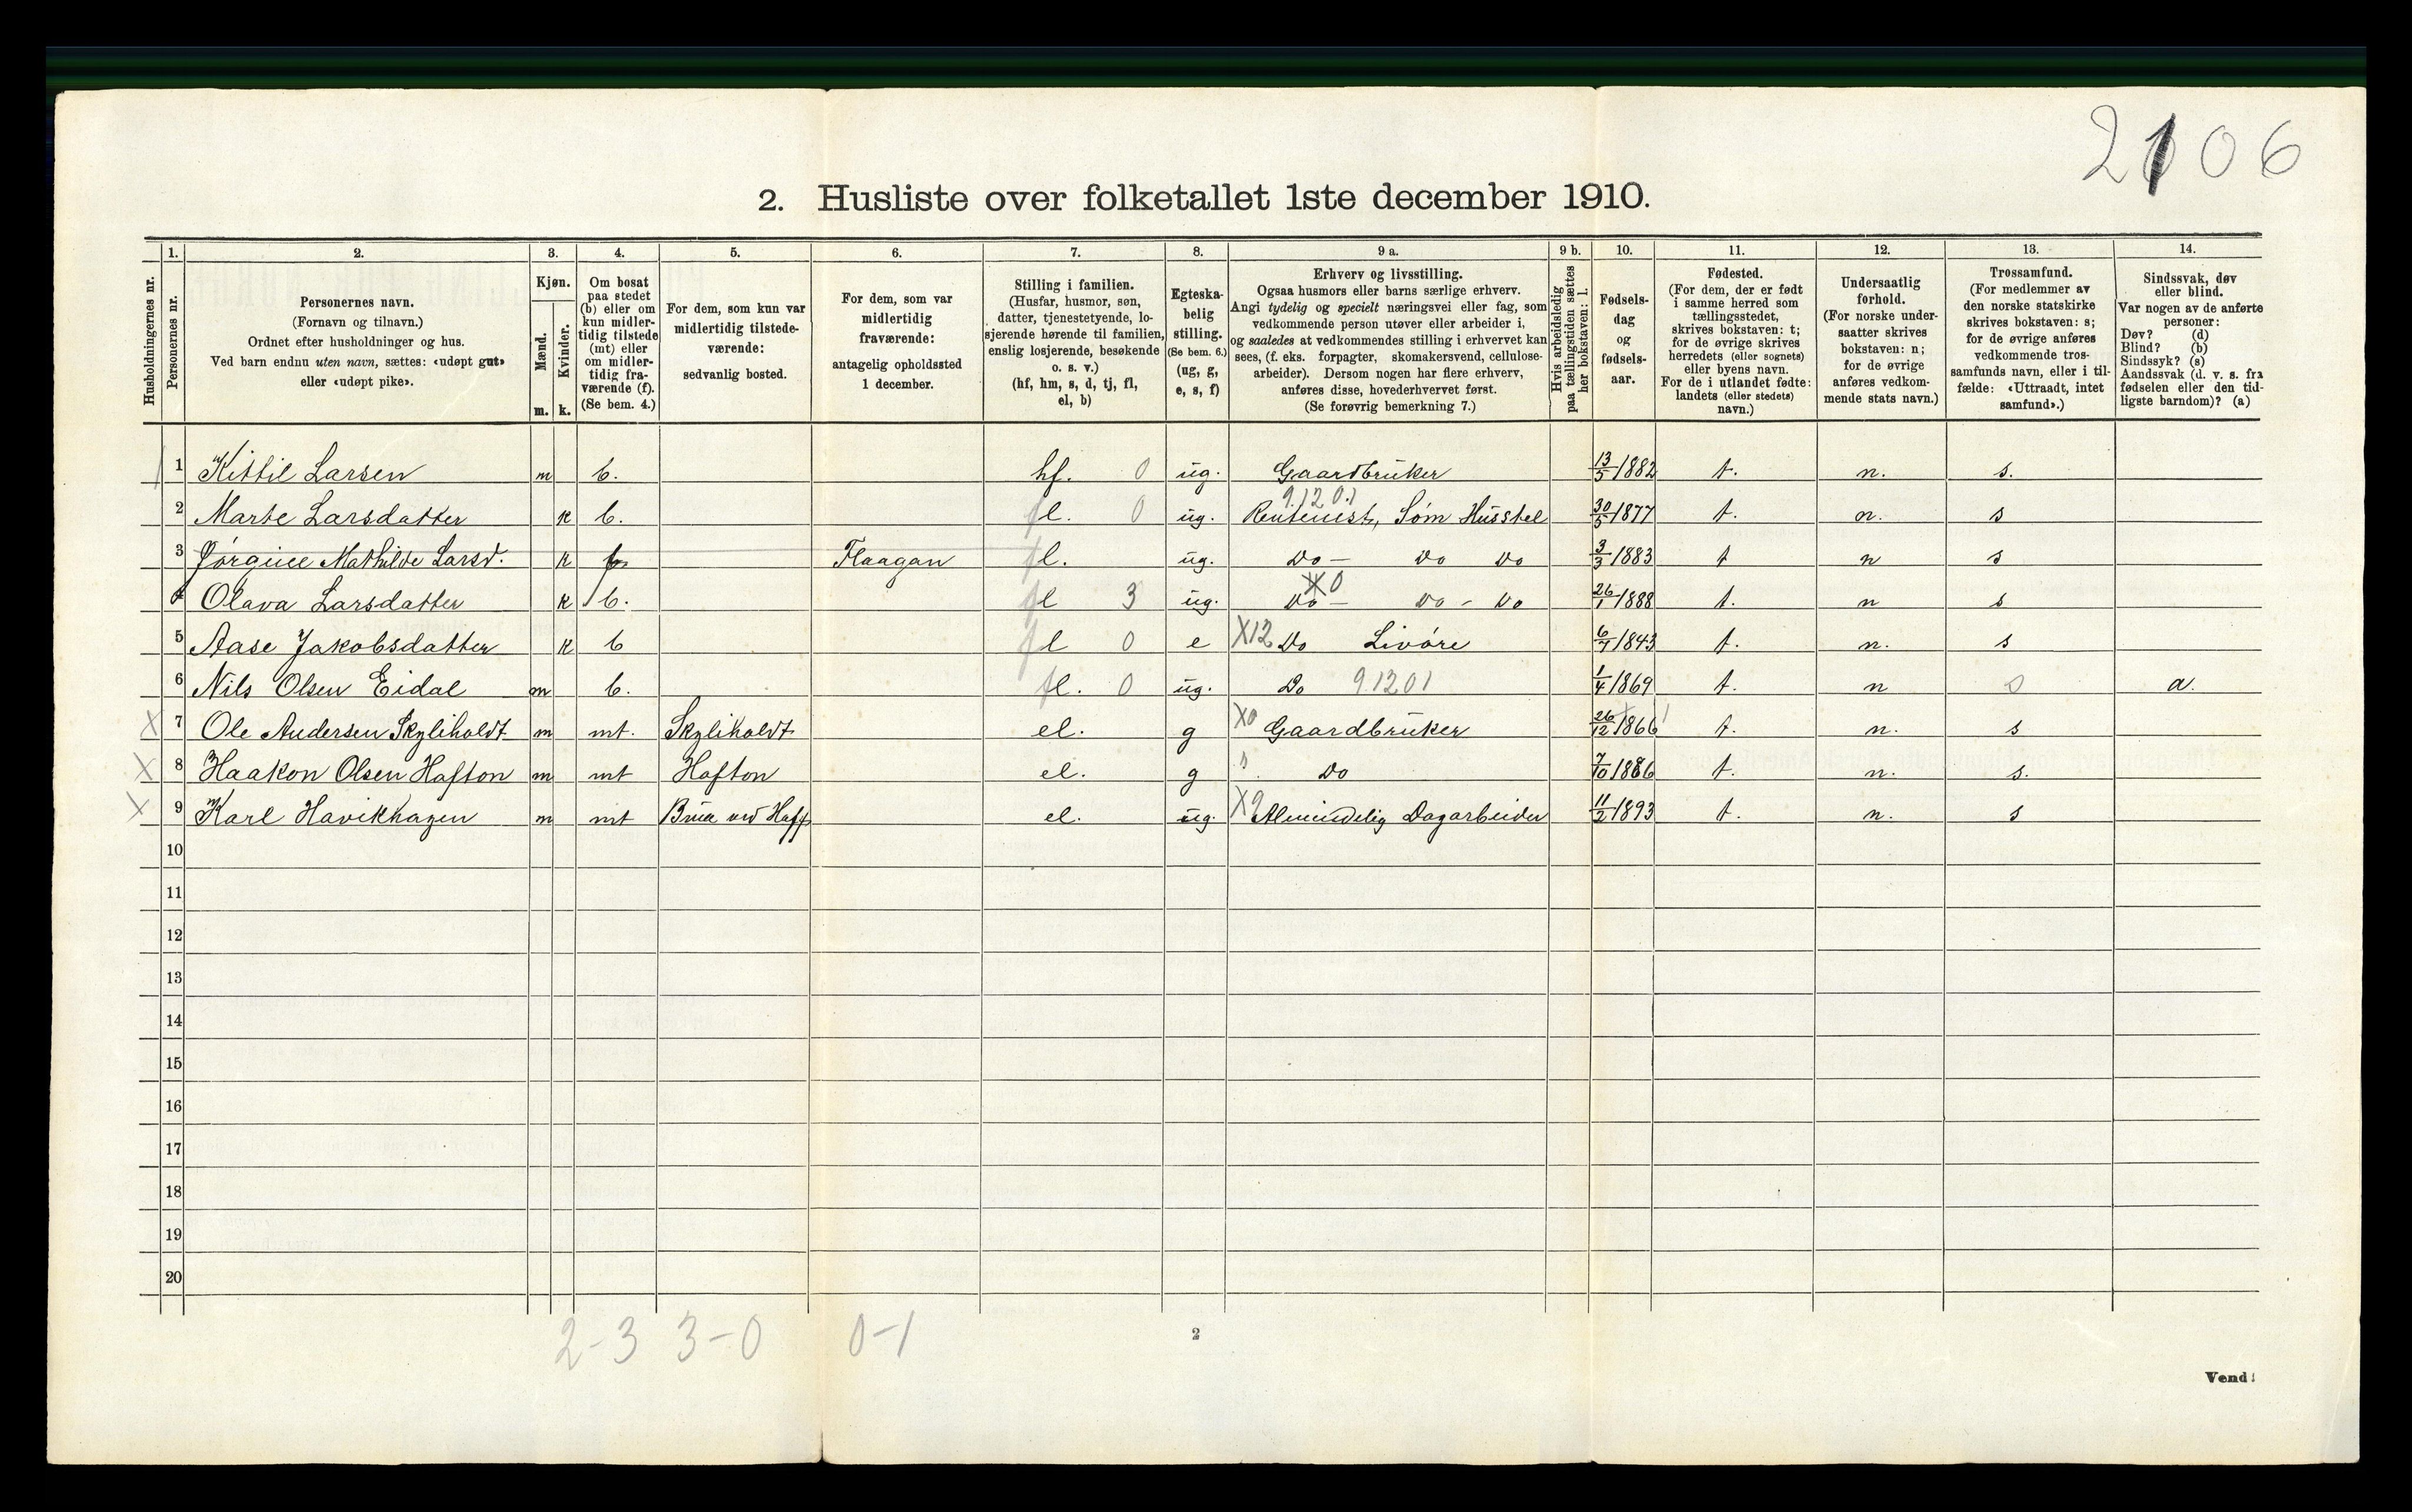 2106
2. Husliste over folketallet 1ste december 1910.
1. 2. 3. 4. 5. 6. 7. 8. 9 a. 9 b. 10. 11. 12. 13. 14.
Husholdningernes nr.
Personernes nr.
Personernes navn.
(Fornavn og tilnavn.)
Ordnet efter husholdninger og hus.
Ved barn endnu uten navn, sættes: «udøpt gut»
eller «udøpt pike».
Kjøn.
Mænd.
Kvinder.
m. k.
Om bosat
paa stedet
(b) eller om
kun midler-
tidig tilstede
(mt) eller
om midler-
tidig fra-
værende (f).
(Se bem. 4.)
For dem, som kun var
midlertidig tilstede-
værende:
sedvanlig bosted.
For dem, som var
midlertidig
fraværende:
antagelig opholdssted
1 december.
Stilling i familien.
(Husfar, husmor, søn,
datter, tjenestetyende, lo-
sjerende hørende til familien,
enslig losjerende, besøkende
o. s. v.)
(hf, hm, s, d, tj, fl,
el, b)
Egteska-
belig
stilling.
(Se bem. 6.)
(ug, g,
e, s, f)
Erhverv og livsstilling.
Ogsaa husmors eller barns særlige erhverv.
Angi tydelig og specielt næringsvei eller fag, som
vedkommende person utøver eller arbeider i,
og saaledes at vedkommendes stilling i erhvervet kan
sees, (f. eks. forpagter, skomakersvend, cellulose-
arbeider). Dersom nogen har flere erhverv,
anføres disse, hovederhvervet først.
(Se forøvrig bemerkning 7.)
Hvis arbeidsledig
paa tællingstiden sættes
her bokstaven: l.
Fødsels-
dag
og
fødsels-
aar.
Fødested.
(For dem, der er født
i samme herred som
tællingsstedet,
skrives bokstaven: t;
for de øvrige skrives
herredets (eller sognets)
eller byens navn.
For de i utlandet fødte:
landets (eller stedets)
navn.)
Undersaatlig
forhold.
(For norske under-
saatter skrives
bokstaven: n;
for de øvrige
anføres vedkom-
mende stats navn.)
Trossamfund.
(For medlemmer av
den norske statskirke
skrives bokstaven: s;
for de øvrige anføres
vedkommende tros-
samfunds navn, eller i til-
fælde: «Uttraadt, intet
samfund».)
Sindssvak, døv
eller blind.
Var nogen av de anførte
personer:
Døv? (d)
Blind? (b)
Sindssyk? (s)
Aandssvak (d. v. s. fra
fødselen eller den tid-
ligste barndom)? (a)
1 Kittil Larsen m b. hf. 0 ug. Gaardbruker 13/5 1882 t. n. s.
9.12 0.1
2 Marte Larsdatter k b. fl. 0 ug. Rentenist, Søm Husstel 30/5 1877 t. n. s
3 Jørgine Mathilde Larsd. k f. Flaagan fl. ug. Do - Do Do 3/3 1883 t n s
X0
4 Olava Larsdatter k b. fl 3 ug. Do - Do - Do 26/1 1888 t. n s
5 Aase Jakobsdatter k b fl 0 e X12 Do Livøre 6/7 1843 t. n. s
6 Nils Olsen Eidal m b. fl. 0 ug. Do 9.12 01 1/4 1869 t. n s a.
X 7 Ole Andersen Skyliholdt m mt. Skyliholdt el. g X0 Gaardbruker 26/12 1866 t. n. s
X 8 Haakon Olsen Hafton m mt Hafton el. g Do 7/10 1886 t. n. s.
X 9 Karl Havikhagen m mt Brua ved Haft el. ug. X9 Almindelig Dagarbeider 11/2 1893 t. n. s
10
11
12
13
14
15
16
17
18
19
20
2-3 3-0 0-1
2
Vend!